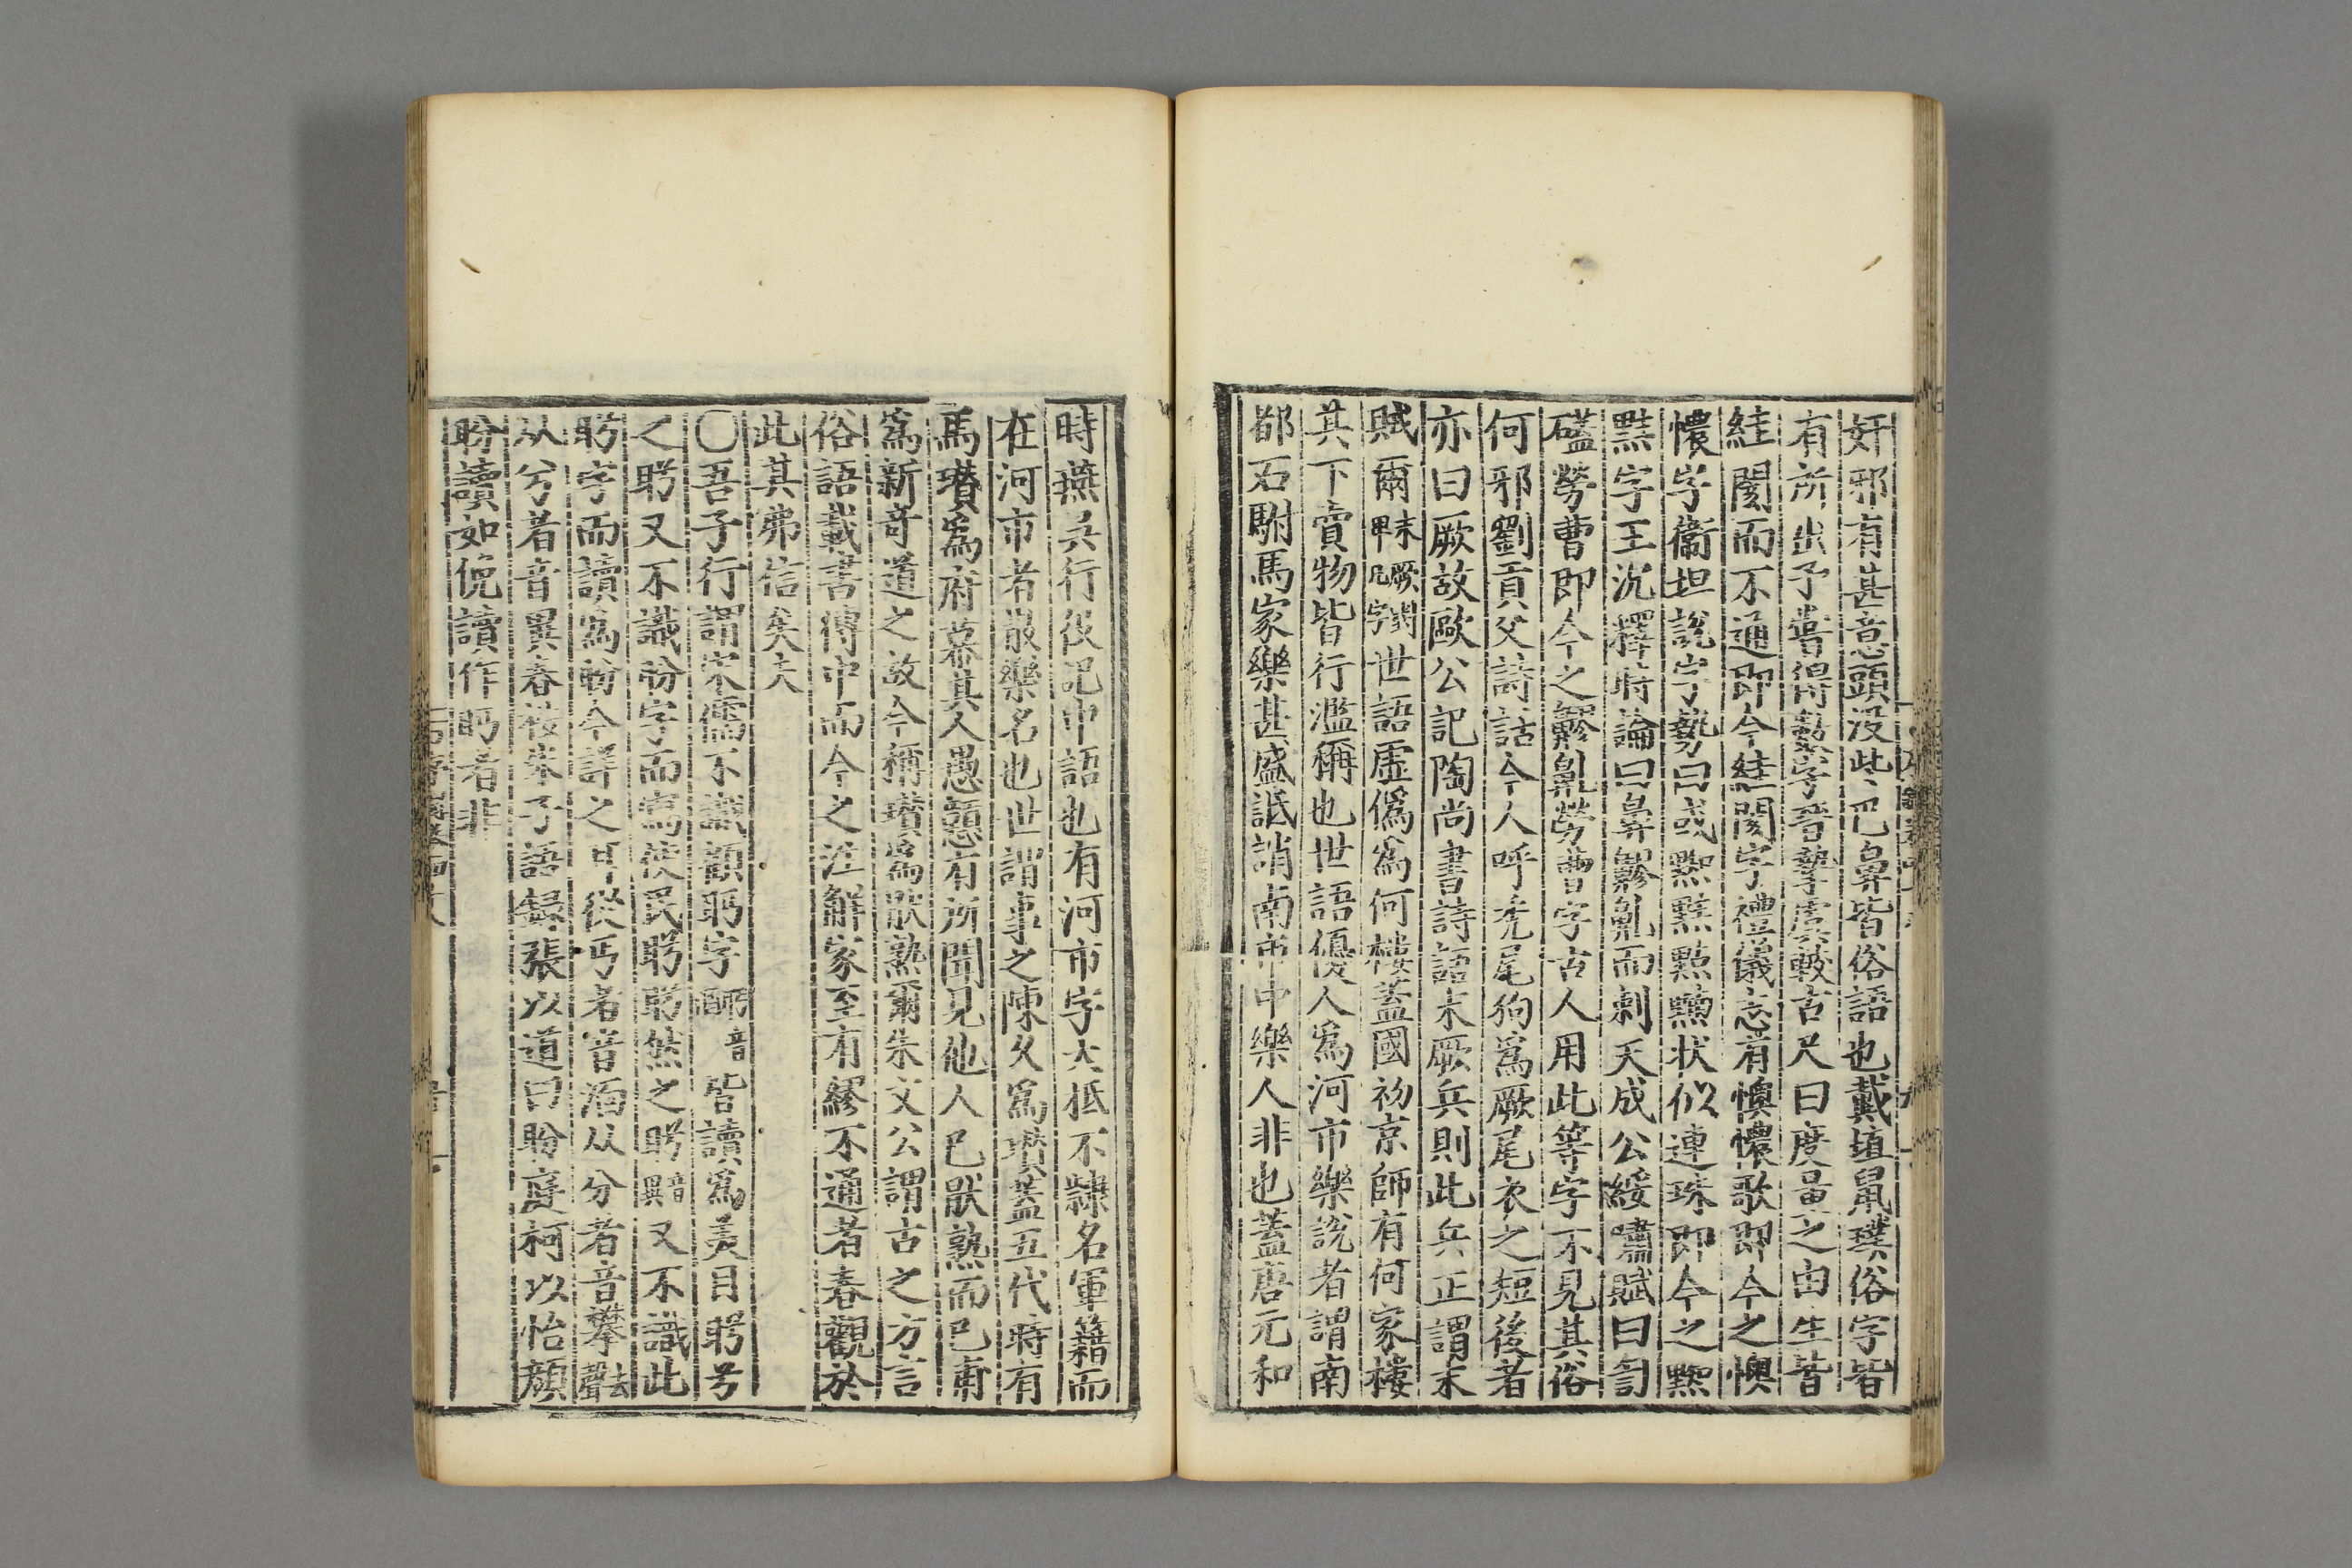 奸邪有甚意頭没些巴鼻皆俗語也戴埴鼠璞俗字皆
有所出予嘗得數字晉摯虞較古尺曰度量之由生皆
絓閡而不通即今絓閡字禮儀志有懊憹歌即今之懊
憹字衞坦說字勢曰或黝黕點䵴狀似連珠即今之黝
黕字王沉釋時論曰鼻齆而刺天成公綏嘯賦曰訇
磕勞曹即今之齆勞曹字古人用此等字不見其俗
何邪劉貢父詩話今人呼禿尾狗爲厥尾衣之短後者
亦曰厥故歐公記陶尚書詩語末厥兵則此兵正謂末
賊爾末厥關甲凡字世語虛僞爲何樓蓋國初京師有何家樓
其下賣物皆行濫稱也世語優人爲河市樂說者謂南
都石駙馬家樂甚盛詆誚南市中樂人非也蓋唐元和
時燕吳行役記中語也有河市字大抵不隷名軍籍而
在河市者散樂名也世謂事之陳久爲瓚蓋五代時有
馬瓚爲府幕其人愚戇有所聞見他人已厭熟而已甫
爲新竒道之故今稱瓚爲厭熟爾朱文公謂古之方言
俗語載書傳中而今之注解家至有繆不通者春觀於
此其弗信矣夫
○吾子行謂宋儒不識顧眄字眄音麪皆讀爲美目盻兮
之盻又不識盼字而寫使民盻盻然之盻音異又不識此
眄字而讀爲盼今詳之耳從丏者音湎从分者音攀去聲
从兮者音異春被朱子語録張以道曰盼庭柯以怡顔
盼讀如俛讀作眄者非